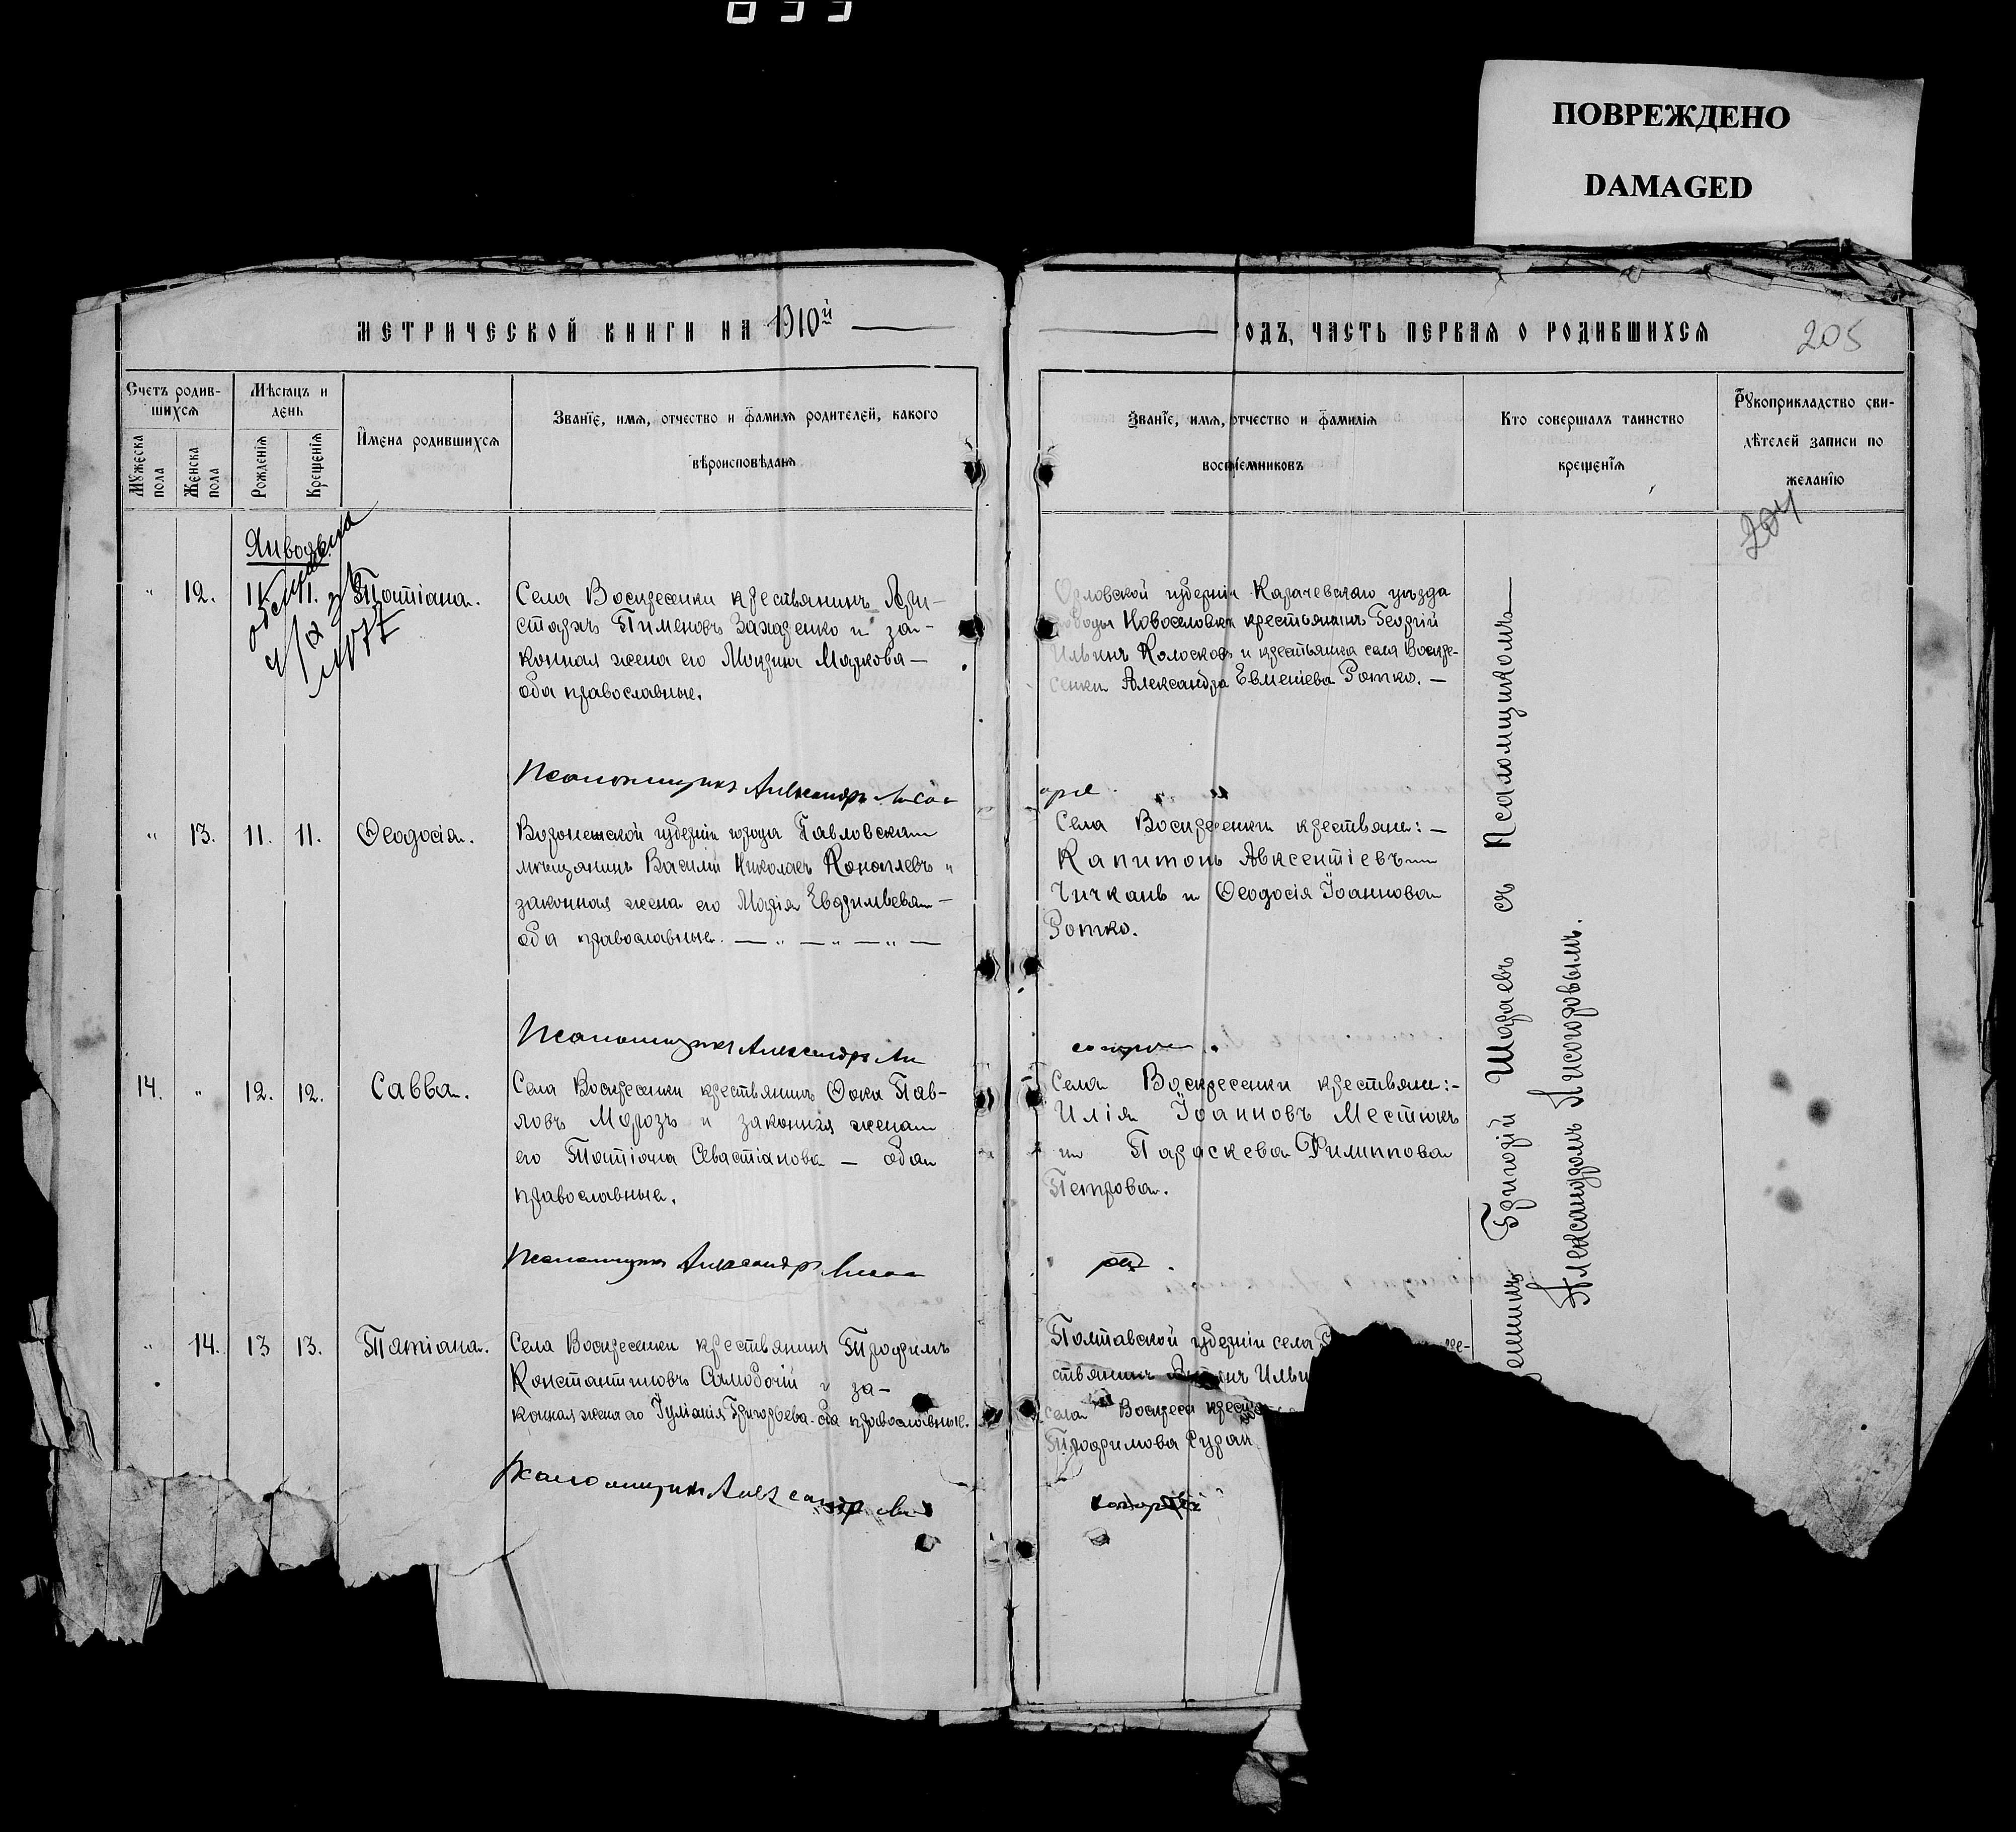 ПОВРЕЖДЕНО
DAMAGED
МЕТРИЧЕСКОЙ КНИГИ НА 1910й
ОДЪ, ЧАСТЬ ПЕРВАЯ О РОДИВШИХСЯ
205
Счетъ родив-
шихся
Мужеска
пола
Женска
пола
Мѣсяцъ и
день
Рожденія
Крещенія
Имена родившихся
Званіе, имя, отчество и фамилія родителей, какого
вѣроисповѣданія
Званіе, имя, отчество и фамилія
воспріемниковъ
Кто совершалъ таинство
крещенія
Рукоприкладство сви-
дѣтелей записи по
желанію
204
Январь
" 12. 11. 11. Татіана.
Села Воскресенки крестьянинъ Ари-
стархъ Пименовъ Захаренко и за-
конная жена его Маркова —
оба православные.
Орловской губерніи Карачевскаго уѣзда
Новоселовки крестьянинъ Георгій
Ильинъ Колосковъ и крестьянка села Воскре-
сенки Александра Евменіева Ротко. —
Псаломщикъ Александръ
" 13. 11. 11. Ѳеодосія.
Воронежской губерніи города Павловска
мѣщанинъ Василій Николаевъ Коноплевъ и
законная жена его Марія —
оба православные. — " — " — " —
Села Воскресенки крестьяне: —
Капитонъ Авксентіевъ
Чичкань и Ѳеодосія Іоаннова
Ротко.
Псаломщикъ Александръ Ли
14. " 12. 12. Савва.
Села Воскресенки крестьянинъ Ѳока Пав-
ловъ Морозъ и законная жена
его Татіана Севастіанова — оба
православные.
Села Воскресенки крестьяне: -
Илія Іоанновъ Местюкъ
и Параскева Филиппова
Петрова.
Псаломщикъ Александръ
" 14. 13 13. Татіана.
Села Воскресенки крестьянинъ Трофимъ
Константиновъ и за-
конная жена его Іуліанія Григорьева. оба православные.
Полтавской губерніи села
стьянинъ Ильи
села Воскресе крест
Трофимова
Псаломщикъ Александръ Ли
Григорій Шараевъ съ Псаломщикомъ —
Александромъ Лисогоровымъ.